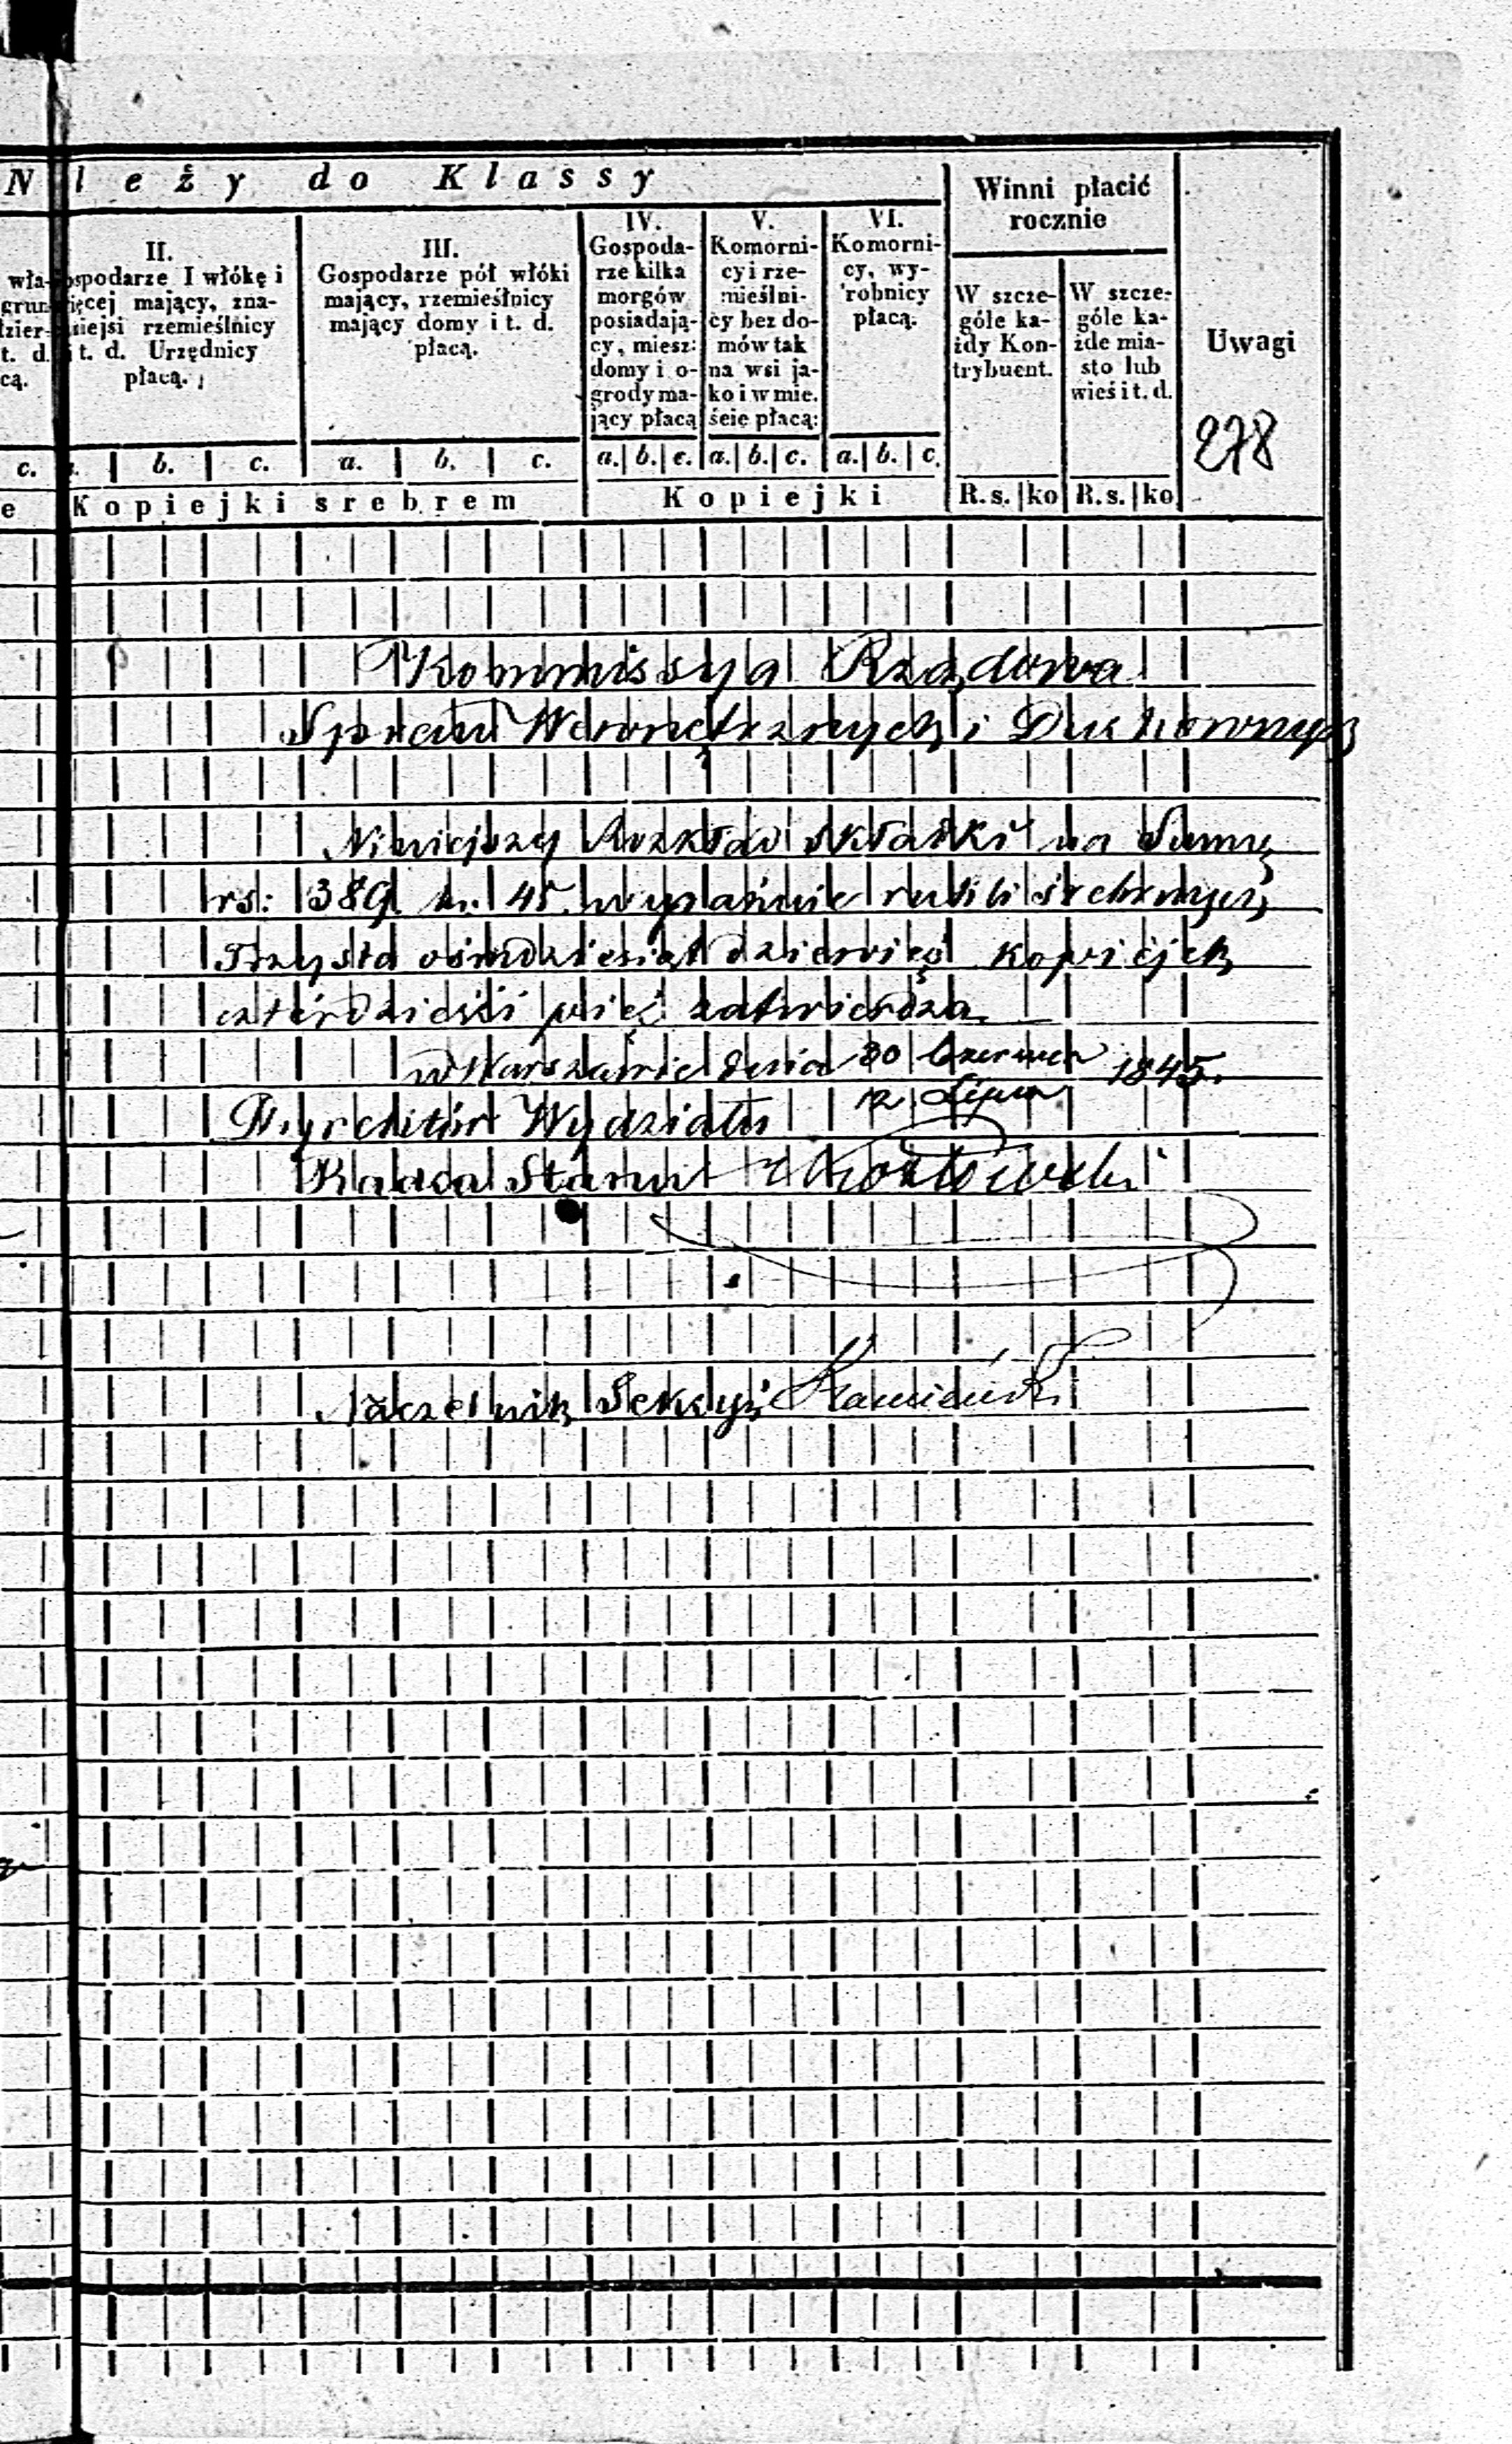 N leży do Klassy
Winni płacić
rocznie
Uwagi
278
wła-
grun-
dzier-
t. d.
cą.
II.
ospodarze I włókę i
ięcej mający, zna-
niejsi rzemieślnicy
i t. d. Urzędnicy
płacą.
III.
Gospodarze pół włóki
mający, rzemieślnicy
mający domy i t. d.
płacą.
IV.
Gospoda-
rze kilka
morgów
posiadają-
cy, miesz:
domy i o-
grody ma-
jący płacą
V.
Komorni-
cy i rze-
mieślni-
cy bez do-
mów tak
na wsi ja-
ko i w mie.
ście płacą:
VI.
Komorni-
cy, wy-
robnicy
płacą.
W szcze-
góle ka-
żdy Kon-
trybuent.
W szcze-
góle ka-
żde mia-
sto lub
wieś i t. d.
c. b. c. a. b. c. a. b. c. a. b. c. a. b. c.
e Kopiejki srebrem Kopiejki R.s. ko R.s. ko
Kommissya Rządowa
Spraw Wewnętrznych i Duchownych
Niniejszy Rozkład składki na Summę
rs: 389 k. 45. wyraźnie rubli srebrnych
Trzysta ośmdziesiąt dziewięć kopiejek
czterdzieści pięć zatwierdza
w Warszawie dnia 30 Czerwca 1845.
12 Lipca
Dyrektor Wydziału
Radca Stanu
Naczelnik Sekcyi Kamieński